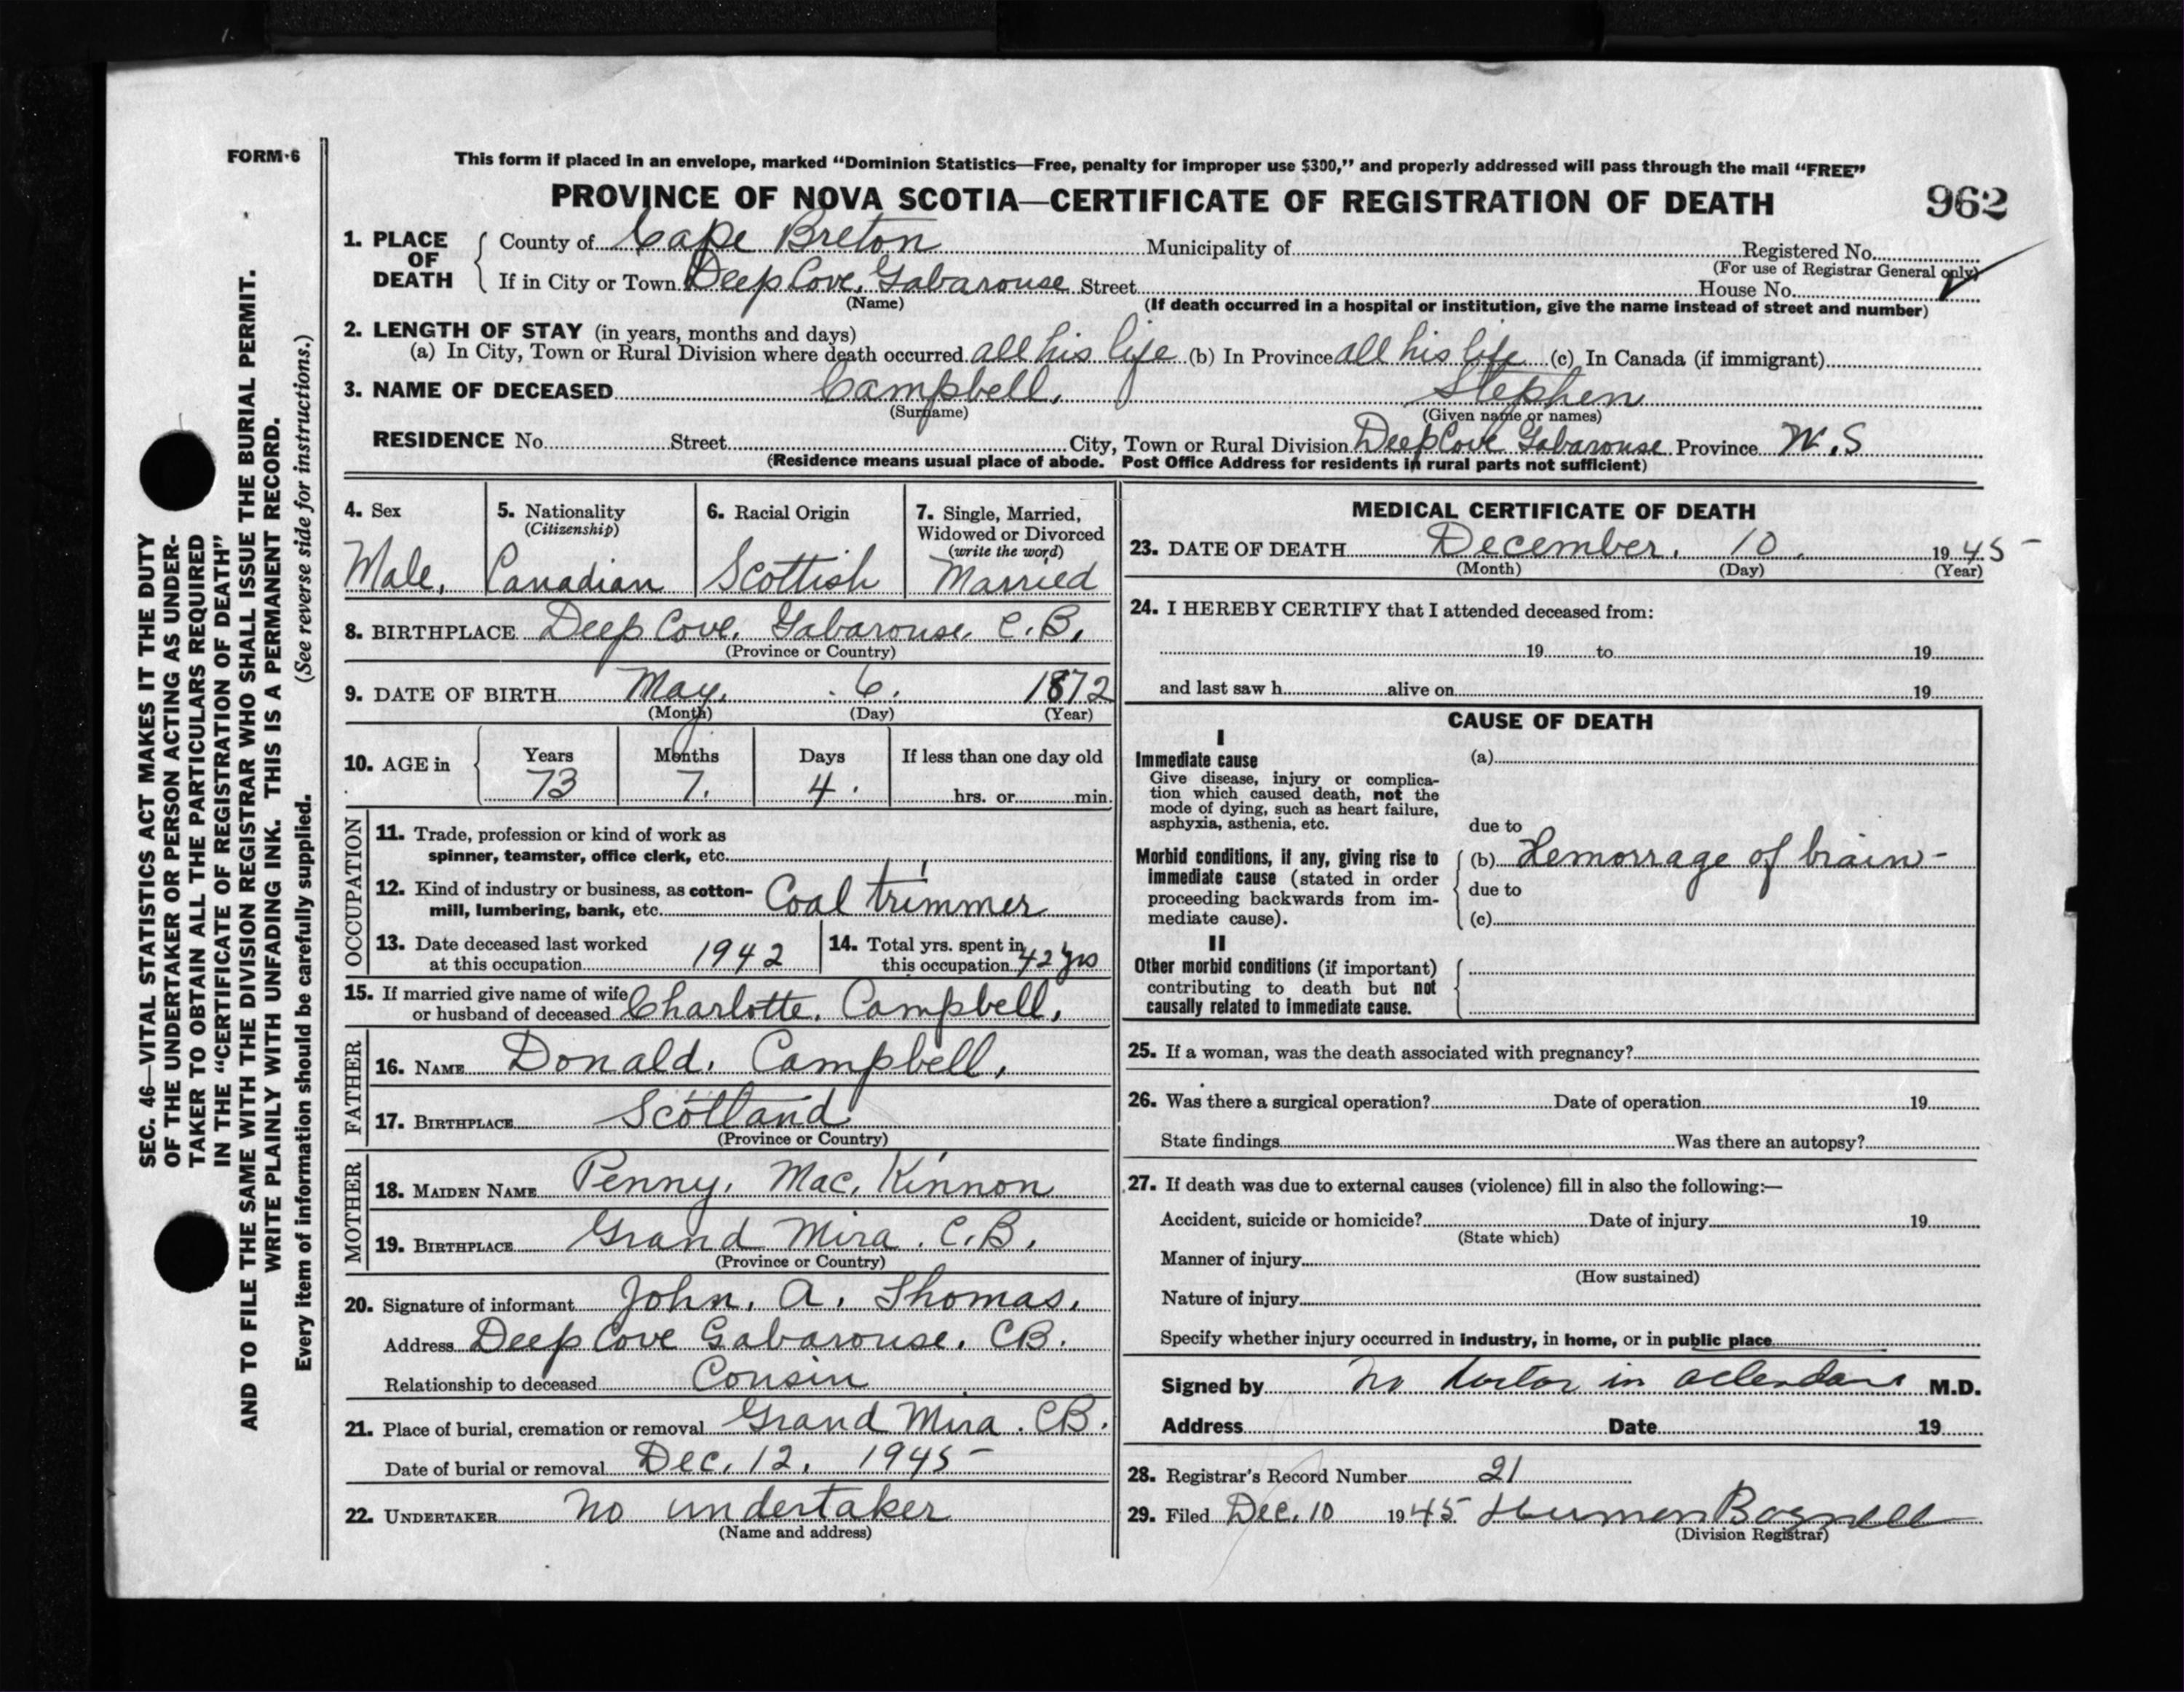 FORM-6
This form if placed in an envelope, marked “Dominion Statistics—Free, penalty for improper use $300,” and properly addressed will pass through the mail “FREE”
PROVINCE OF NOVA SCOTIA—CERTIFICATE OF REGISTRATION OF DEATH 962
1. PLACE OF DEATH
County of Cape Breton Municipality of Registered No.
(For use of Registrar General only)
If in City or Town Deep Cove, Gabarouse Street House No.
(Name) (If death occurred in a hospital or institution, give the name instead of street and number)
2. LENGTH OF STAY (in years, months and days)
(a) In City, Town or Rural Division where death occurred all his life (b) In Province all his life (c) In Canada (if immigrant)
3. NAME OF DECEASED Campbell, Stephen
(Surname) (Given name or names)
RESIDENCE No. Street City, Town or Rural Division Deep Cove Gabarouse Province N.S
(Residence means usual place of abode. Post Office Address for residents in rural parts not sufficient)
4. Sex
Male,
5. Nationality
(Citizenship)
Canadian
6. Racial Origin
Scottish
7. Single, Married,
Widowed or Divorced
(write the word)
Married
8. BIRTHPLACE Deep Cove, Gabarouse, C.B.
(Province or Country)
9. DATE OF BIRTH May. 6. 1872
(Month) (Day) (Year)
10. AGE in
Years Months Days If less than one day old
73 7. 4. hrs. or min.
OCCUPATION
11. Trade, profession or kind of work as
spinner, teamster, office clerk, etc.
12. Kind of industry or business, as cotton-
mill, lumbering, bank, etc. Coal trimmer
13. Date deceased last worked
at this occupation 1942
14. Total yrs. spent in
this occupation 42 yrs
15. If married give name of wife
or husband of deceased Charlotte. Campbell,
FATHER
16. NAME Donald. Campbell,
17. BIRTHPLACE Scotland
(Province or Country)
MOTHER
18. MAIDEN NAME Penny. Mac. Kinnon
19. BIRTHPLACE Grand Mira. C.B.
(Province or Country)
20. Signature of informant John. A. Thomas.
Address Deep Cove Gabarouse. CB.
Relationship to deceased Cousin
21. Place of burial, cremation or removal Grand Mira. CB.
Date of burial or removal Dec. 12. 1945
22. UNDERTAKER no undertaker
(Name and address)
MEDICAL CERTIFICATE OF DEATH
23. DATE OF DEATH December. 10. 1945
(Month) (Day) (Year)
24. I HEREBY CERTIFY that I attended deceased from:
19 to 19
and last saw h alive on 19
CAUSE OF DEATH
I
Immediate cause (a)
Give disease, injury or complica-
tion which caused death, not the
mode of dying, such as heart failure,
asphyxia, asthenia, etc.
due to
Morbid conditions, if any, giving rise to
immediate cause (stated in order
proceeding backwards from im-
mediate cause).
(b) Hemorrage of brain-
due to
(c)
II
Other morbid conditions (if important)
contributing to death but not
causally related to immediate cause.
25. If a woman, was the death associated with pregnancy?
26. Was there a surgical operation? Date of operation 19
State findings Was there an autopsy?
27. If death was due to external causes (violence) fill in also the following:—
Accident, suicide or homicide? Date of injury 19
(State which)
Manner of injury
(How sustained)
Nature of injury
Specify whether injury occurred in industry, in home, or in public place
Signed by no doctor in attendans M.D.
Address Date 19
28. Registrar's Record Number 21
29. Filed Dec. 10 1945 Hermon Bagnell
(Division Registrar)
SEC. 46—VITAL STATISTICS ACT MAKES IT THE DUTY
OF THE UNDERTAKER OR PERSON ACTING AS UNDER-
TAKER TO OBTAIN ALL THE PARTICULARS REQUIRED
IN THE “CERTIFICATE OF REGISTRATION OF DEATH”
AND TO FILE THE SAME WITH THE DIVISION REGISTRAR WHO SHALL ISSUE THE BURIAL PERMIT.
WRITE PLAINLY WITH UNFADING INK. THIS IS A PERMANENT RECORD.
Every item of information should be carefully supplied. (See reverse side for instructions.)